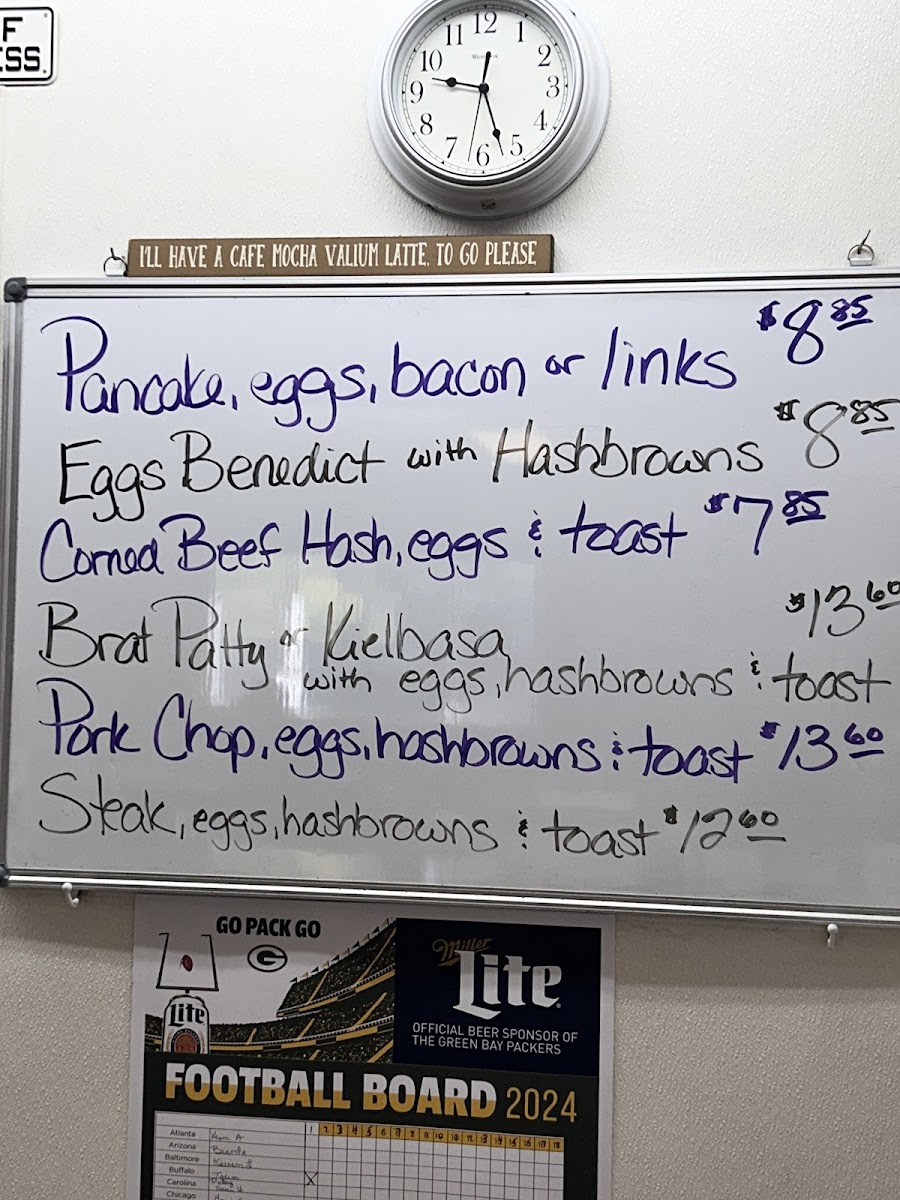 F
ESS.
12
11 1
10 2
9 3
8 4
7 5
6
I'LL HAVE A CAFE MOCHA VALIUM LATTE, TO GO PLEASE
Pancake, eggs, bacon or links $8 85
Eggs Benedict with Hashbrowns $8 85
Corned Beef Hash, eggs & toast $7 85
Brat Patty or Kielbasa $13 60
with eggs, hashbrowns & toast
Pork Chop, eggs, hashbrowns & toast $13 60
Steak, eggs, hashbrowns & toast $12 60
GO PACK GO
G
Miller
Lite
Lite
OFFICIAL BEER SPONSOR OF
THE GREEN BAY PACKERS
FOOTBALL BOARD 2024
1 2 3 4 5 6 7 8 9 10 11 12 13 14 15 16 17 18
Atlanta
Arizona
Baltimore
Buffalo
Carolina X
Chicago